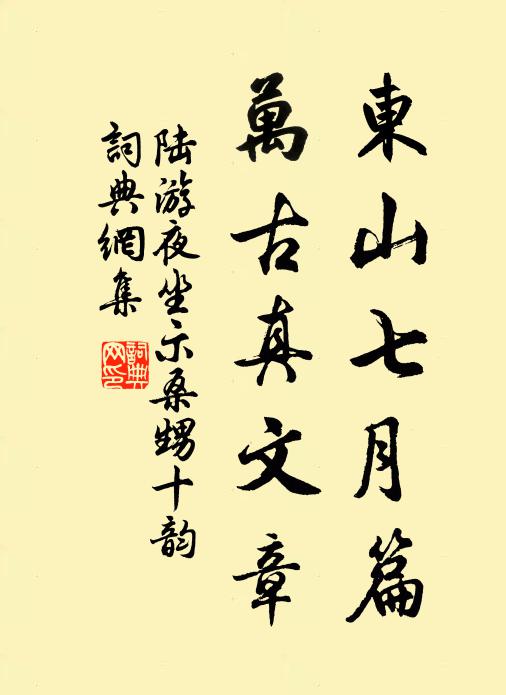 東山七月篇
萬古真文章
陸游夜坐示桑甥十韵
詞典網集
詞典网印